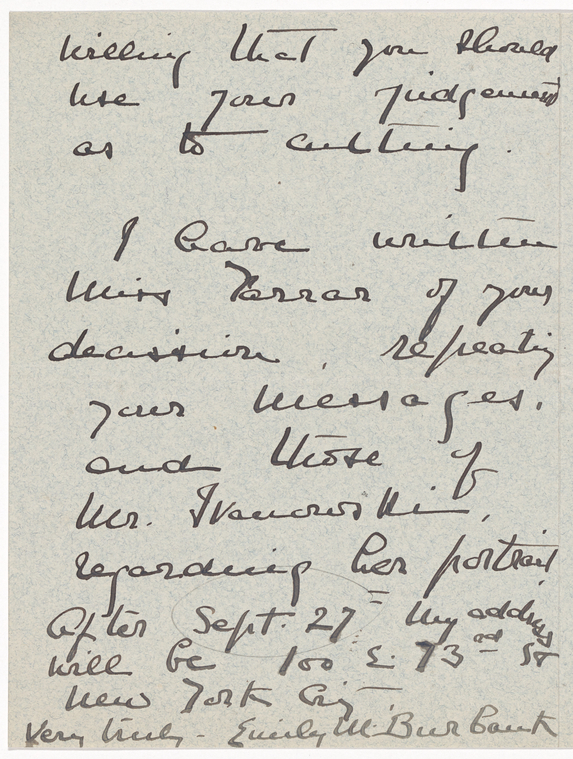 willing that you should
use your judgement
as to cutting.
I have written
Miss Farrar of your
decision, repeating
your messages,
and those of
Mr. Ivanowski,
regarding her portrait
After Sept. 27= my address
will be 100 E. 73rd St
New York City
Very truly - Emily M. Burbank